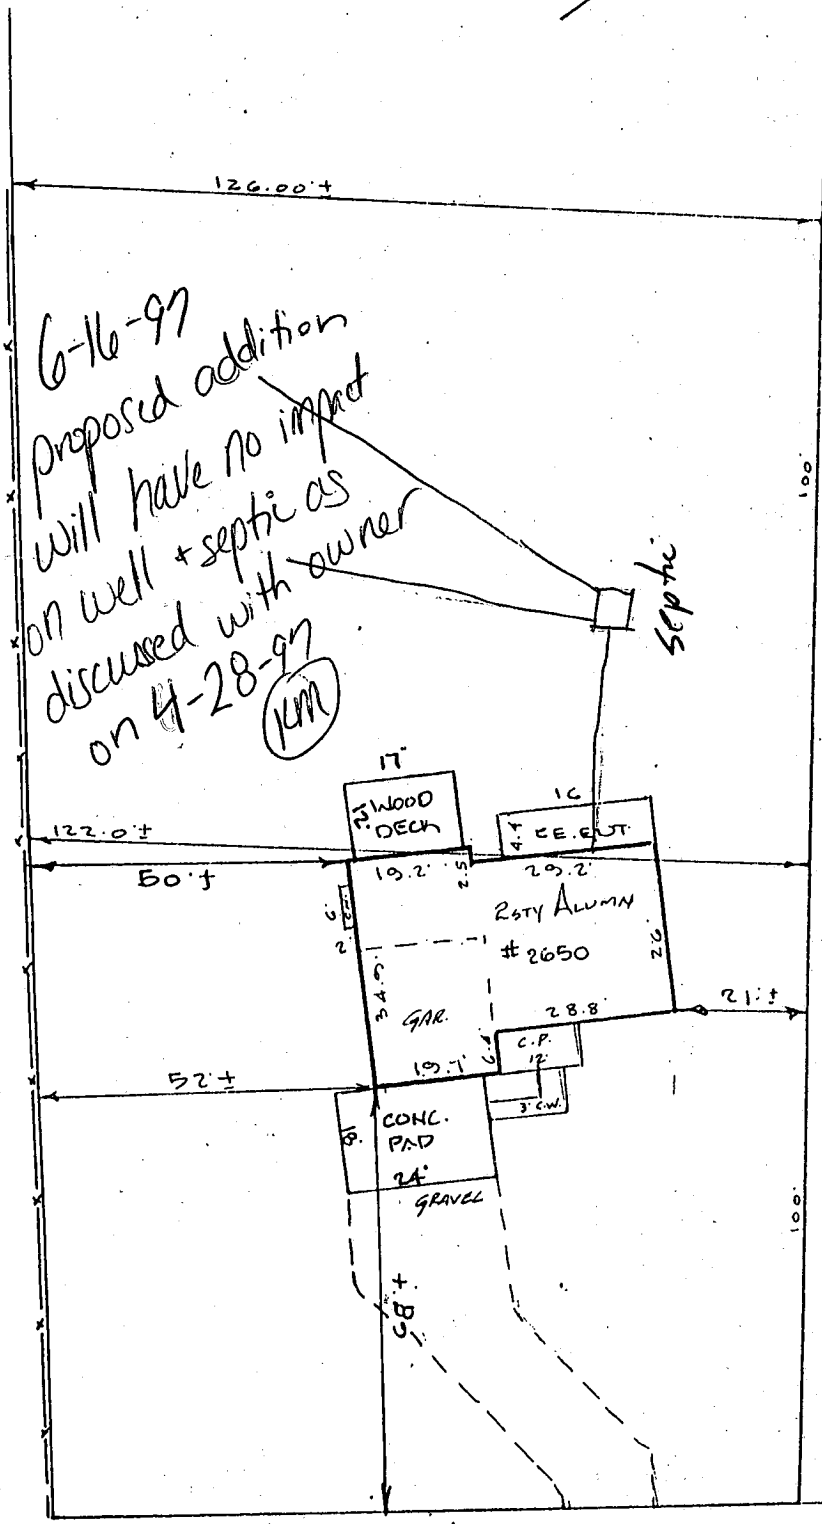 126.00'±
6-16-97
proposed addition
will have no impact
on well + septic as
discussed with owner
on 4-28-97
KM
100'
Septic
17'
12'
WOOD
DECK
16
4.4
122.0'±
50'±
19.2'
2.5
29.2'
2 STY ALUMN
# 2650
26'
6'
2'
34.9'
GAR.
28.8'
21'±
C.P.
12'
19.7
52'±
3' C.W.
CONC.
PAD
18'
24'
GRAVEL
100'
68'±